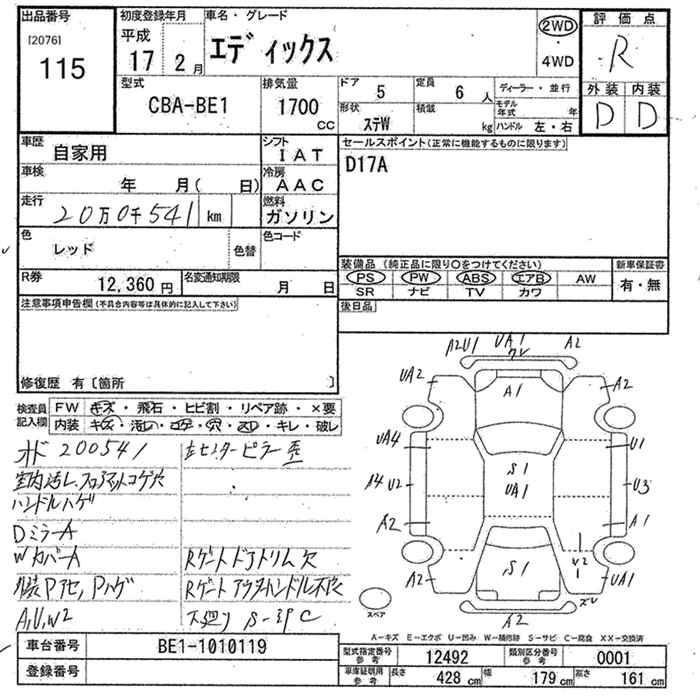 出品番号
[2076]
115
初度登録年月
平成
17 2月
車名・グレード
エディックス
2WD
・
4WD
評価点
R
外装 内装
D D
型式
CBA-BE1
排気量
1700 cc
ドア 5
定員 6 人
形状 ステW
積載 kg
ディーラー・並行
モデル年式 年
ハンドル 左・右
車歴
自家用
シフト
IAT
車検
年 月( 日)
冷房
AAC
走行
20万0千541 km
燃料
ガソリン
色
レッド
色替
色コード
R券
12,360 円
名変通知期限
月 日
セールスポイント(正常に機能するものに限ります)
D17A
装備品 (純正品に限り○をつけてください)
PS PW ABS エアB AW
SR ナビ TV カワ
新車保証書
有・無
後日品
注意事項申告欄(不具合内容等は具体的に記入して下さい)
修復歴 有〔箇所 〕
検査員
記入欄
FW キズ・飛石・ヒビ割・リペア跡・×要
内装 キズ・汚レ・コゲ・穴・スレ・キレ・破レ
オド 200541
左センターピラー歪
室内汚レ、フロアマットコゲ穴
ハンドルハゲ
DミラーA
WカバーA
Rゲートドアトリム欠
外装Pアセ,Pハゲ
Rゲートアウタハンドル不良
A,U,W2
下廻り S-ミPC
A2U1 UA1 A2
UA2 A1 A2
UA4 U1
S1
A4 U2 UA1 U3
A2 A1
V2
A2 S1 UA1
A2
スペア
A-キズ E-エクボ U-凹み W-補修跡 S-サビ C-腐食 XX-交換済
車台番号
BE1-1010119
登録番号
型式指定番号
参考
12492
類別区分番号
参考
0001
車庫証明用
参考
長さ 428 cm 幅 179 cm 高さ 161 cm